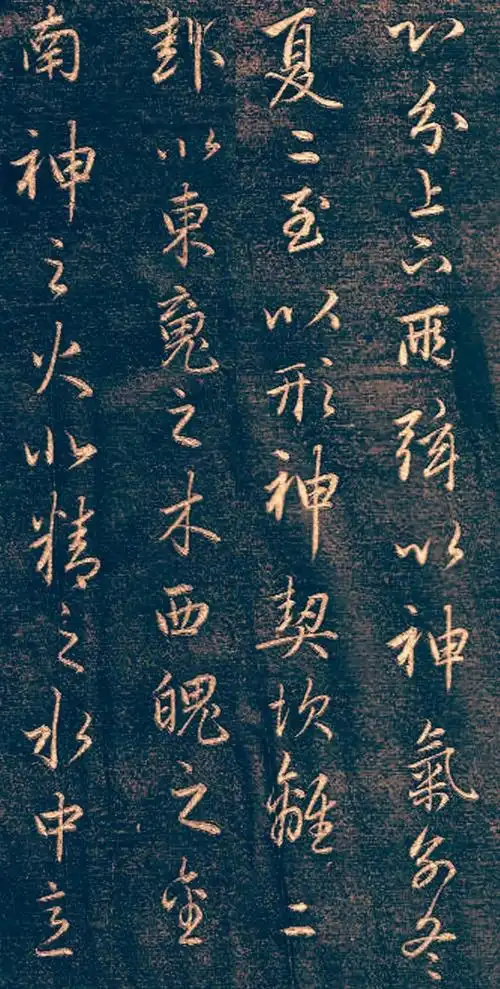 以分上下兩弦以神氣別冬
夏二至以形神契坎離二
卦以東魂之木西魄之金
南神之火北精之水中意